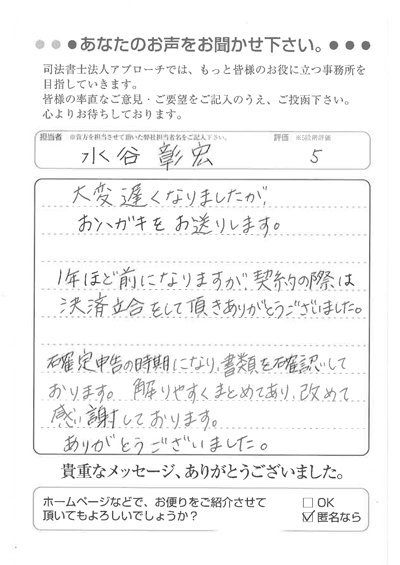 あなたのお声をお聞かせ下さい。
司法書士法人アプローチでは、もっと皆様のお役に立つ事務所を
目指していきます。
皆様の率直なご意見・ご要望をご記入のうえ、ご投函下さい。
心よりお待ちしております。
担当者 ※貴方を担当させて頂いた弊社担当者名をご記入下さい。 評価 ※5段階評価
水谷 彰宏 5
大変遅くなりましたが、
おハガキをお送りします。
1年ほど前になりますが、契約の際は
決済立合をして頂きありがとうございました。
確定申告の時期になり、書類を確認して
おります。解りやすくまとめてあり、改めて
感謝しております。
ありがとうございました。
貴重なメッセージ、ありがとうございました。
ホームページなどで、お便りをご紹介させて
頂いてもよろしいでしょうか?
OK
匿名なら